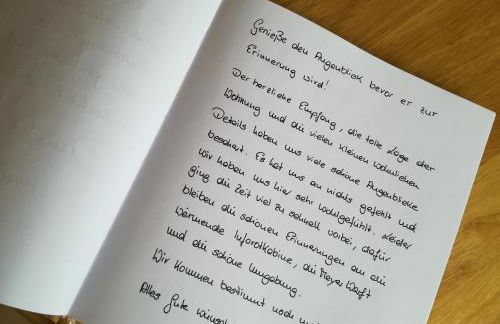 Genieße den Augenblick bevor er zur
Erinnerung wird!
Der herzliche Empfang, die tolle Lage der
Wohnung und die vielen kleinen wohnlichen
Details haben uns viele schöne Augenblicke
beschert. Es hat uns an nichts gefehlt und
wir haben uns hier sehr wohlgefühlt. Leider
ging die Zeit viel zu schnell vorbei, dafür
bleiben die schönen Erinnerungen an die
wärmende Infrarotkabine, die Meyer Werft
und die schöne Umgebung.
Wir kommen bestimmt noch
Alles Gute